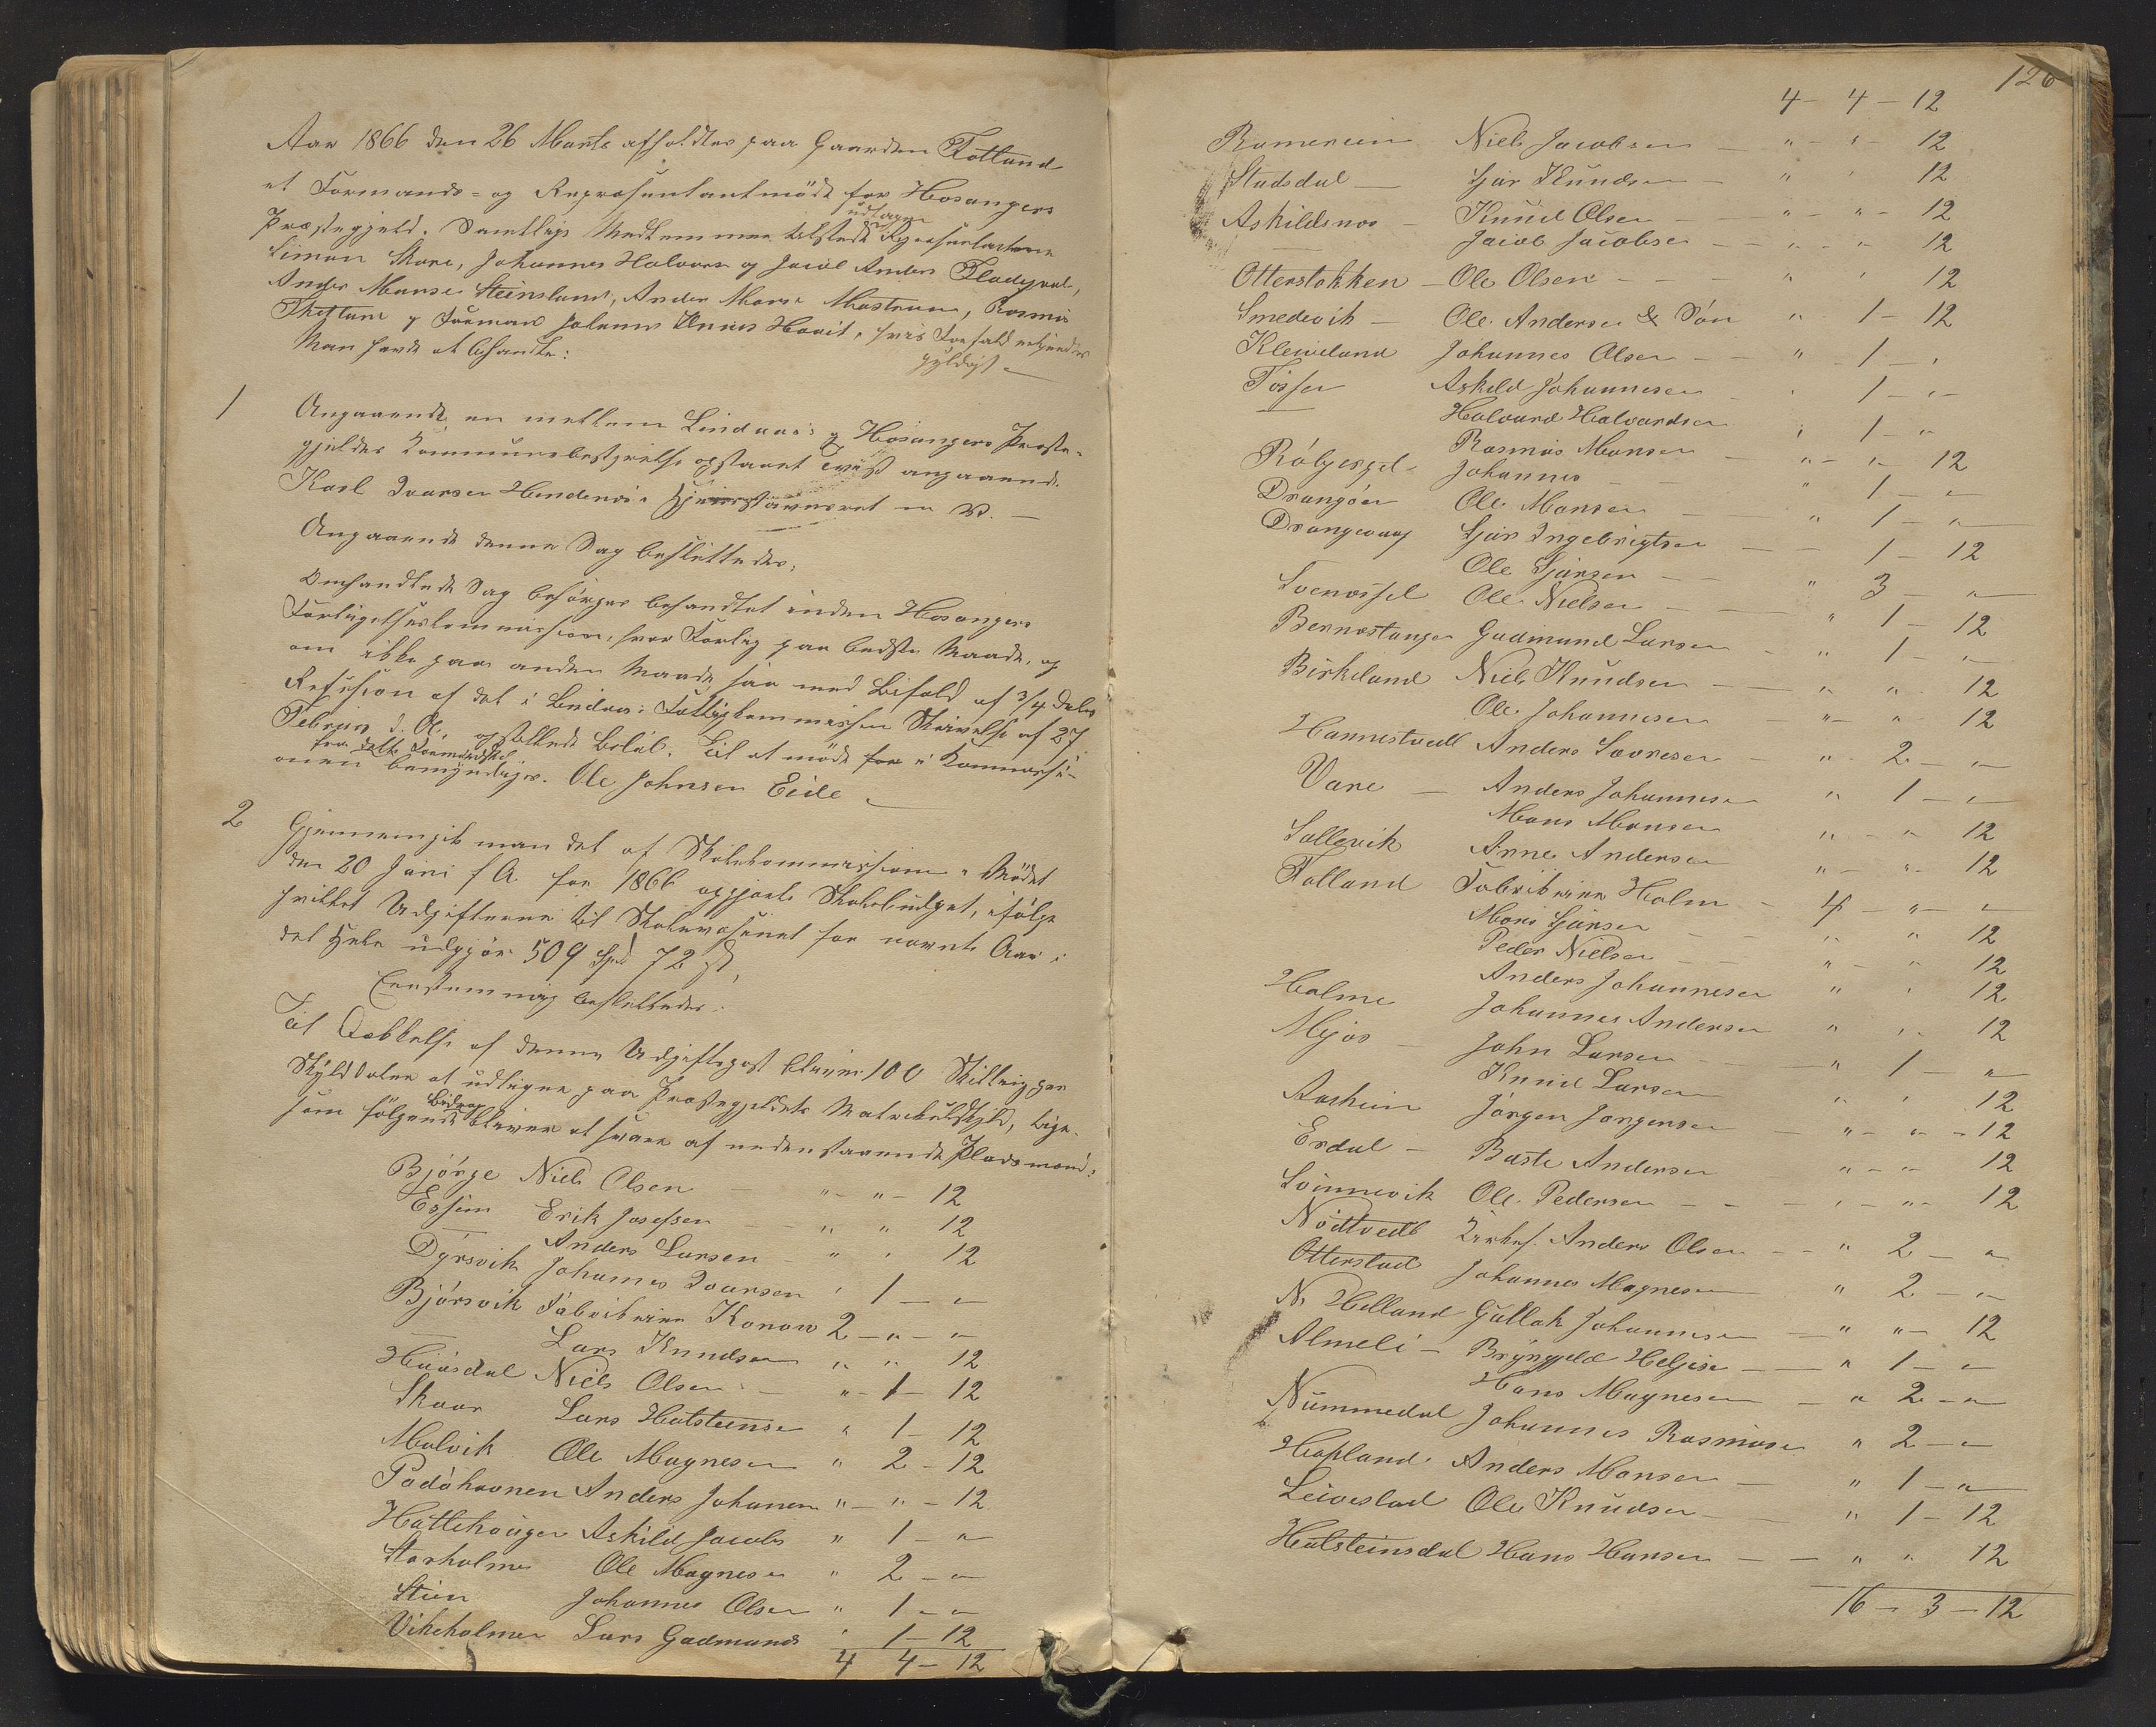 Aar 1866 den 26 Marts afholdtes paa Gaarden Totland
et Formands- og Repræsentantmöde for Hosangers
Præstegjeld. Samtlige Medlemmer tilstede udtagen Repræsentanterne
Simon Skare, Johannes Halvors og Jacob Anders Fladqval,
Anders Monsen Steinsland, Anders Mons Mostraum, Rasmus
og Formand Johannes Hovit, hvis Forfald erkjendtes
gyldigt –
Man havde at behandle:
1 Angaaende en mellem Lindaas's og Hosangers Præste-
gjelds Kommunebestyrelse opstaaet Tvist angaaende
Karl Ivarsen Hindenæs's Hjemstavnsret m. v. –
Angaaende denne Sag besluttedes:
Omhandlede Sag besörges behandlet inden Hosangers
Forligelseskommission, hvor Forlig paa bedste Maade, og
om ikke paa anden Maade saa med Bifald af 3/4 Deles
Refusion af det i Lindaas Fattigkommissions Skrivelse af 27
Februar d. A. opstillede Belöb. Til at möde for i Kommissi-
fra dette Formandskab
onen bemyndiges Ole Johnsen Eide –
2 Gjennemgik man det af Skolekommissionen i Mödet
den 20 Juni f A. for 1866 opgjorte Skolebudget, ifölge
hvilket Udgifterne til Skolevæsenet for nævnte Aar i
det Hele udgjör 509 Spd 72 ß,
Eenstemmig besluttedes:
Til Dækkelse af denne Udgiftspost bliver 100 Skilling per
Skylddaler at udligne paa Præstegjeldets Matrikulskyld, lige-
som fölgende Bidrag bliver at svare af nedenstaaende Pladsmænd:
Björge Niels Olsen – " – " – 12
Essem Erik Josefsen – " " 12
Anders Larsen – " " 12
Dyrsvik Johannes Ivarsen " 1 – "
Björsvik Fabrikeier Konow 2 – " – "
Lars Knudsen " " 12
Huusdal Niels Olsen – " – 1 – 12
Skaar Lars Halsteinsen " 1 – 12
Molvik Ole Magnesen " 2 – 12
Padöhavnen Anders Johannes " – " – 12
Hattehougen Askild Jacobs " 1 – "
Storholmen Ole Magnesen " 2 – "
Stien Johannes Olsen " 1 – "
Vikeholmen Lars Gudmunds " 1 – 12
4 4 – 12
126
4 – 4 – 12
Romereim Niels Jacobsen " – " – 12
Stadsdal – Sjur Knudsen – " " 12
Askildsnes – Knud Olsen – " – " – 12
Jacob Jacobsen – " – " 12
Otterstokken – Ole Olsen – – " " 12
Smedevik – Ole Andersen & Sön " 1 – 12
Kleiveland Johannes Olsen – – " – 1 – "
Tösse Askild Johannesen " 1 – "
Halvard Halvardsen " 1 – "
Rasmus Monsen – " – " – 12
Johannes – – " 1 – "
Drangöen Ole Monsen – " 1 – "
Drangevaag Sjur Ingebrigtsen – – 1 – 12
Ole Sjursen – – " 3 – "
Ole Nielsen – – " 1 – 12
Bernestangen Gudmund Larsen – " 1 – "
Birkeland Niels Knudsen – " " 12
Ole Johannesen – " – " 12
Hannestvedt Anders Sevresen – " 2 – "
Vare – Anders Johannesen " 1 – "
Mons Monsen " – " 12
Sollevik Anne Andersen " – " 12
Totland Fabrikeier Holm – 4 – " – "
Mons Sjursen – – " " 12
Peder Nielsen – – " – " 12
Anders Johannesen " " 12
Holme Johannes Andersen " " 12
Mjös – John Larsen – – " 1 – "
Knud Larsen " " 12
Aasheim Jörgen Jörgensen – " – " – 12
Erdal – Baste Andersen " – " 12
Svinnevik Ole Pedersen – – " – " – 12
Nödtvedt Kirkes. Anders Olsen – – " 2 – "
Otterstad Johannes Magnesen " 2 – "
N. Helland Gullak Johannesen – " " – 12
Almeli – Bryngeld Helgesen – – " 1 – "
Hans Magnesen – " 2 – "
Nummedal Johannes Rasmusen " 2 – "
Hopland Anders Monsen – " 1 – "
Leivestad Ole Knudsen – – " 1 – 12
Halsteinsdal Hans Hansen – – " " 12
16 – 3 – 12